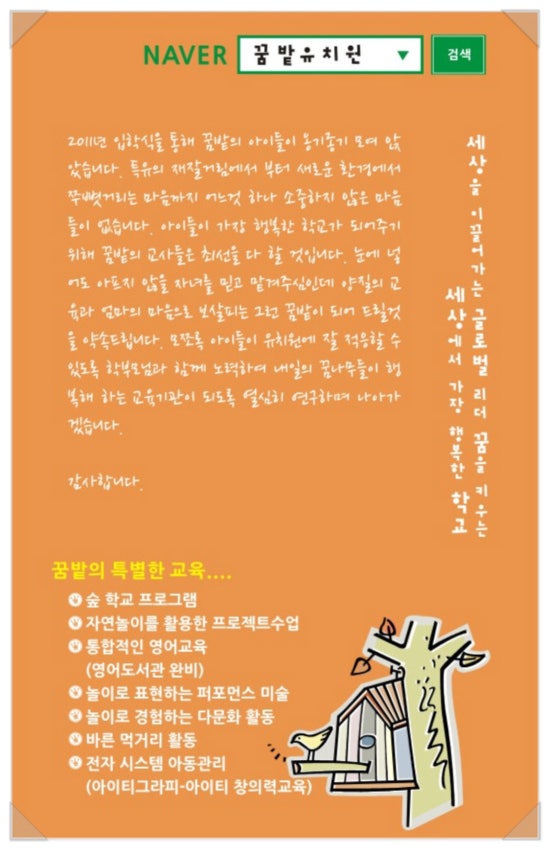 NAVER 꿈밭유치원 ▼ 검색
2011년 입학식을 통해 꿈밭의 아이들이 옹기종기 모여 앉
았습니다. 특유의 재잘거림에서 부터 새로운 환경에서
쭈뼛거리는 마음까지 어느것 하나 소중하지 않은 마음
들이 없습니다. 아이들이 가장 행복한 학교가 되어주기
위해 꿈밭의 교사들은 최선을 다 할 것입니다. 눈에 넣
어도 아프지 않을 자녀를 믿고 맡겨주심인데 양질의 교
육과 엄마의 마음으로 보살피는 그런 꿈밭이 되어 드릴것
을 약속드립니다. 모쪼록 아이들이 유치원에 잘 적응할 수
있도록 학부모님과 함께 노력하여 내일의 꿈나무들이 행
복해 하는 교육기관이 되도록 열심히 연구하며 나아가
겠습니다.
감사합니다.
세상을 이끌어가는 글로벌 리더 꿈을 키우는
세상에서 가장 행복한 학교
꿈밭의 특별한 교육....
숲 학교 프로그램
자연놀이를 활용한 프로젝트수업
통합적인 영어교육
(영어도서관 완비)
놀이로 표현하는 퍼포먼스 미술
놀이로 경험하는 다문화 활동
바른 먹거리 활동
전자 시스템 아동관리
(아이티그라피-아이티 창의력교육)